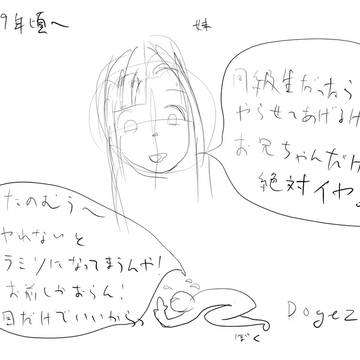 9年頃〜
妹
同級生だったら
やらせてあげるけ
お兄ちゃんだけ
絶対イヤ。
たのむう〜
ヤれないと
になってまうんや!
お前しかおらん!
回だけでいいから
ぼく
Dogez